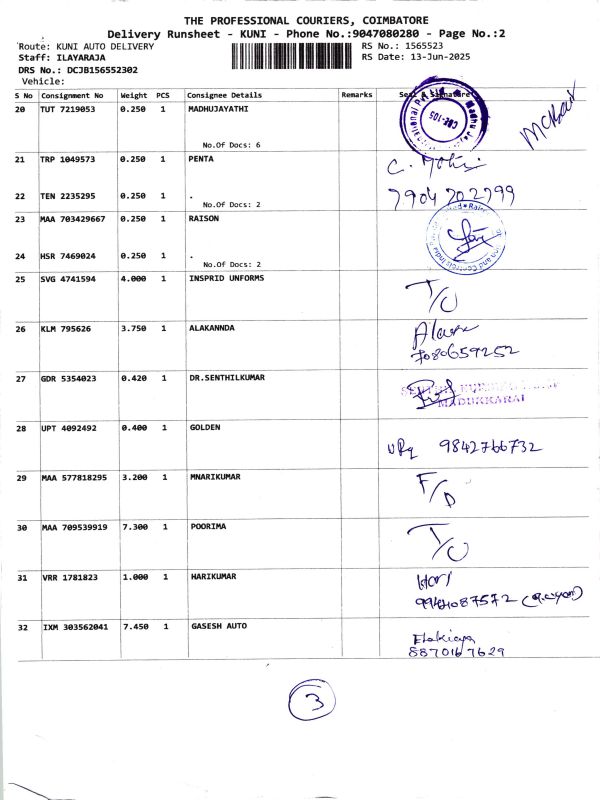 THE PROFESSIONAL COURIERS, COIMBATORE
Delivery Runsheet - KUNI - Phone No.:9047080280 - Page No.:2
Route: KUNI AUTO DELIVERY RS No.: 1565523
Staff: ILAYARAJA RS Date: 13-Jun-2025
DRS No.: DCJB156552302
Vehicle:
S No Consignment No Weight PCS Consignee Details Remarks Seal & Signature
20 TUT 7219053 0.250 1 MADHUJAYATHI
No.Of Docs: 6
CBE-105
21 TRP 1049573 0.250 1 PENTA
C. Mohi
22 TEN 2235295 0.250 1 . 7904702799
No.Of Docs: 2
23 MAA 703429667 0.250 1 RAISON
24 HSR 7469024 0.250 1 .
No.Of Docs: 2
25 SVG 4741594 4.000 1 INSPRID UNFORMS
T/O
26 KLM 795626 3.750 1 ALAKANNDA
7080659252
27 GDR 5354023 0.420 1 DR.SENTHILKUMAR
MADUKKARAI
28 UPT 4092492 0.400 1 GOLDEN
9842766732
29 MAA 577818295 3.200 1 MNARIKUMAR
F/D
30 MAA 709539919 7.300 1 POORIMA
T/O
31 VRR 1781823 1.000 1 HARIKUMAR
Hari
32 IXM 303562041 7.450 1 GASESH AUTO
Elakiaya
8870167629
3